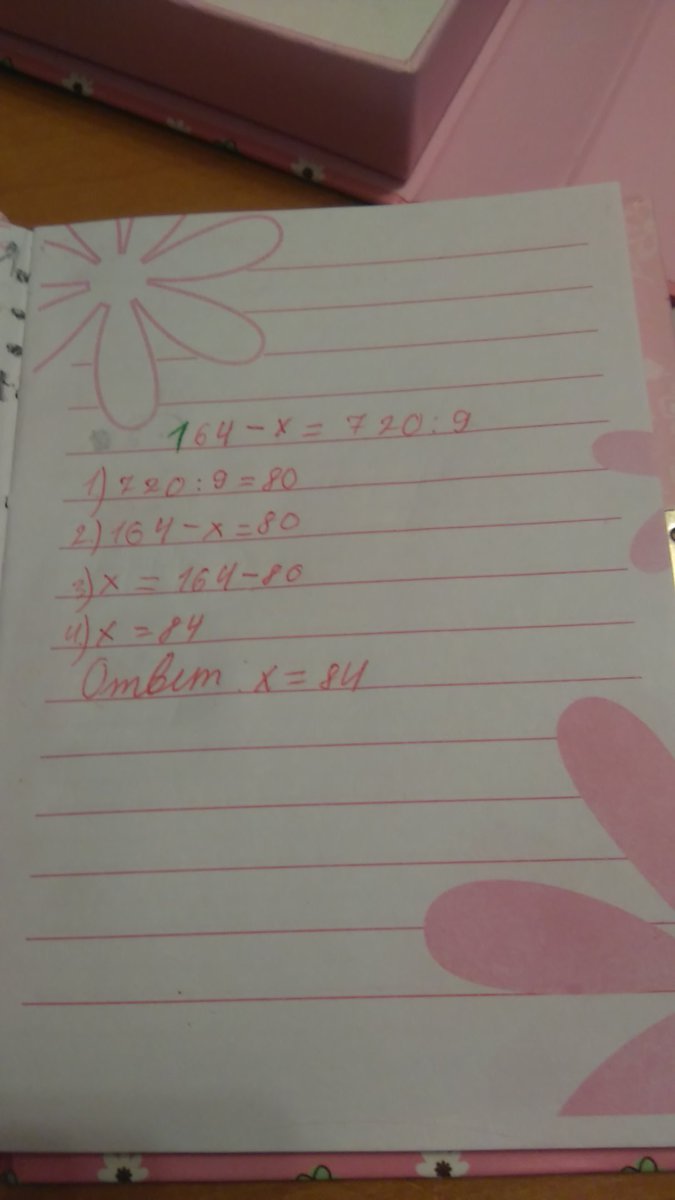 164 - x = 720 : 9
1) 720 : 9 = 80
2) 164 - x = 80
3) x = 164 - 80
4) x = 84
Ответ: x = 84